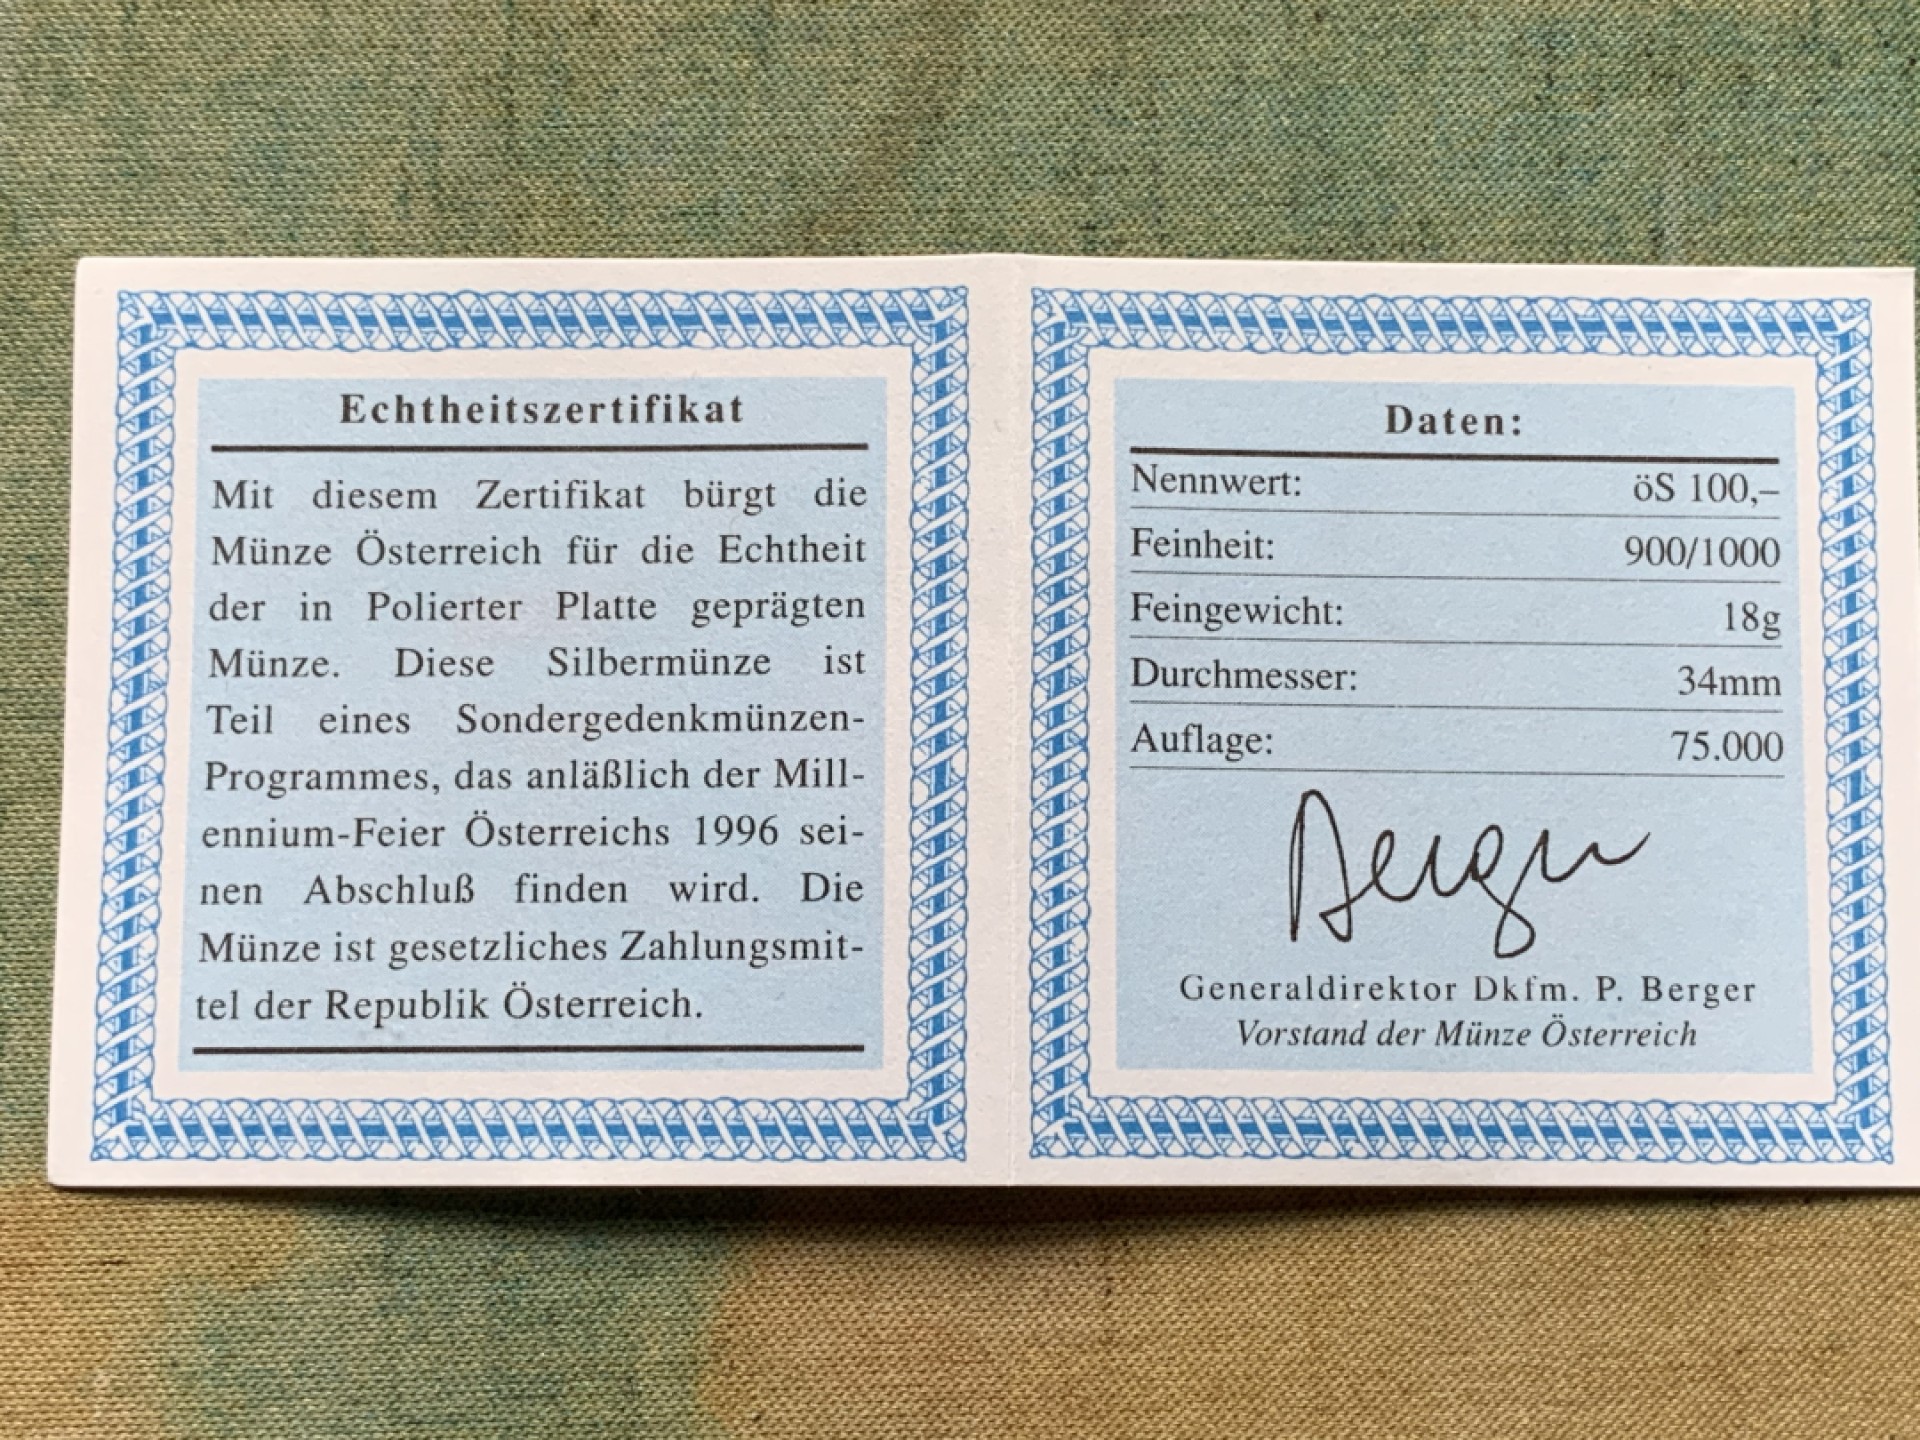 Echtheitszertifikat
Mit diesem Zertifikat bürgt die
Münze Österreich für die Echtheit
der in Polierter Platte geprägten
Münze. Diese Silbermünze ist
Teil eines Sondergedenkmünzen-
Programmes, das anläßlich der Mill-
ennium-Feier Österreichs 1996 sei-
nen Abschluß finden wird. Die
Münze ist gesetzliches Zahlungsmit-
tel der Republik Österreich.
Daten:
Nennwert: öS 100,–
Feinheit: 900/1000
Feingewicht: 18g
Durchmesser: 34mm
Auflage: 75.000
Berger
Generaldirektor Dkfm. P. Berger
Vorstand der Münze Österreich